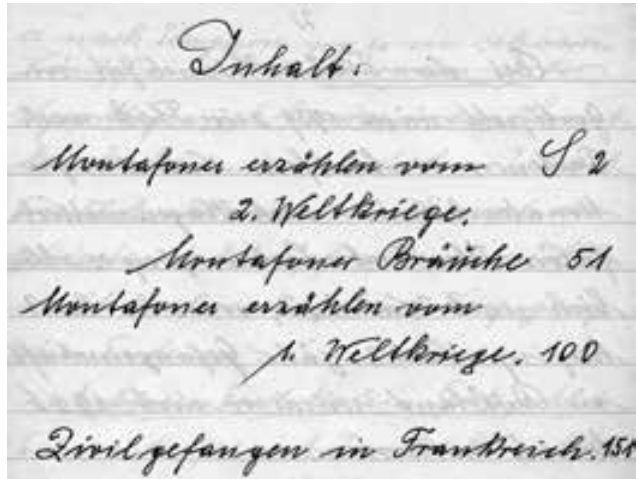 Inhalt:
Montafoner erzählen vom S 2
2. Weltkriege.
Montafoner Bräuche 51
Montafoner erzählen vom
1. Weltkriege. 100
Zivilgefangen in Frankreich. 151